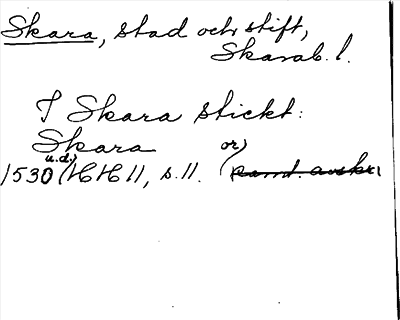 Skara, stad och stift,
Skarab. l.
I Skara stickt:
Skara
u.d.) or)
1530 (HH 11, s. 11.